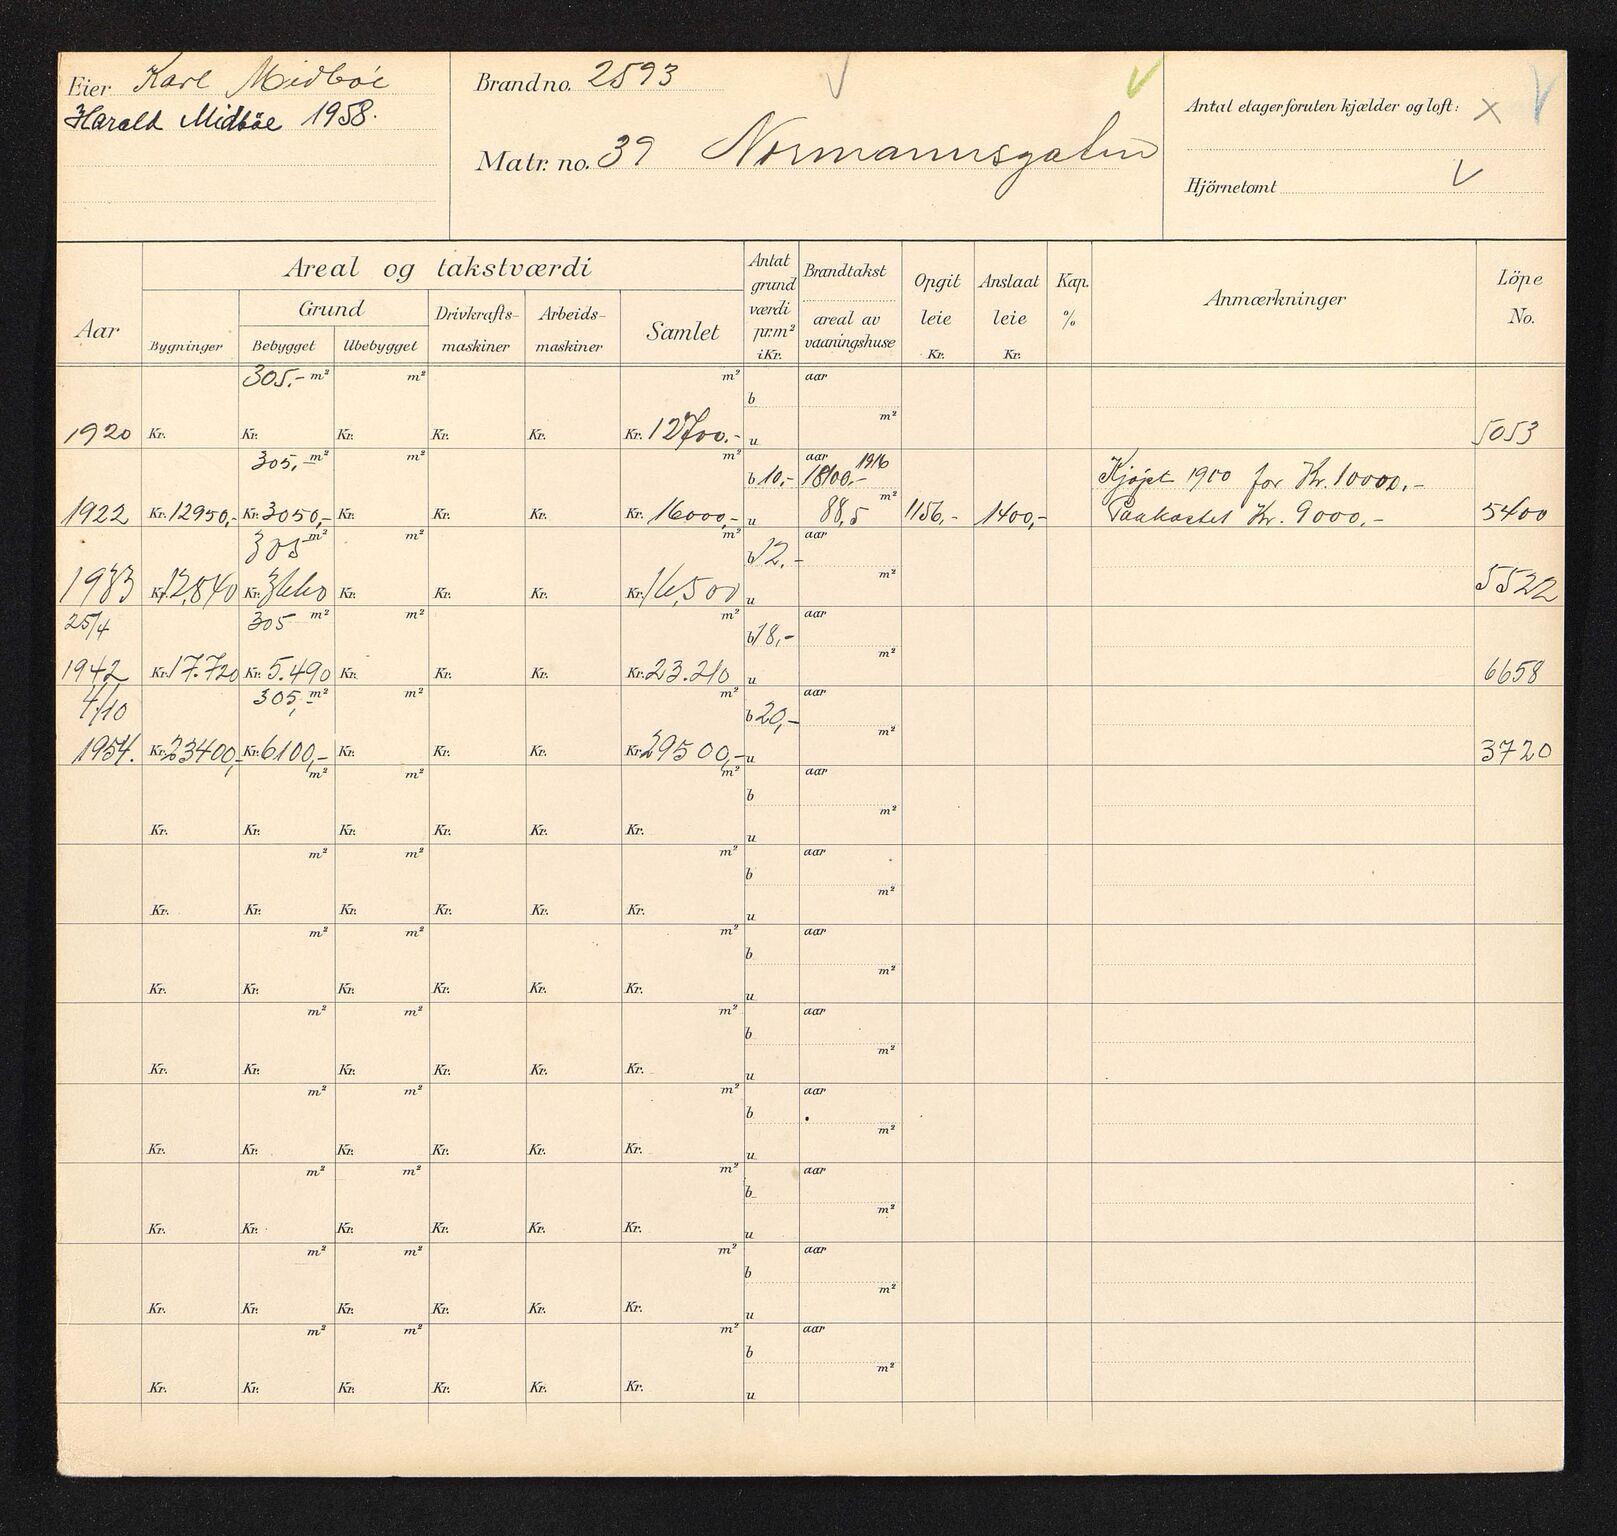 Eier Karl Midbøe
Harald Midbøe 1958.
Brand no. 2593
Matr. no. 39 Normannsgaten
Antal etager foruten kjælder og loft: x
Hjörnetomt
Aar
Areal og takstværdi
Bygninger
Grund
Bebygget
Ubebygget
Drivkrafts-
maskiner
Arbeids-
maskiner
Samlet
Antat
grund
værdi
pr. m²
i Kr.
Brandtakst
areal av
vaaningshuse
Opgit
leie
Kr.
Anslaat
leie
Kr.
Kap.
%
Anmærkninger
Löpe
No.
305.- m² m² m² b aar m²
1920 Kr. Kr. Kr. Kr. Kr. Kr. 12700.- u 5053
305,- m² m² m² b 10,- aar 1916 18100.- m² Kjøpt 1900 for Kr. 10000,-
1922 Kr. 12950,- Kr. 3050,- Kr. Kr. Kr. Kr. 16000,- u 88,5 1156,- 1400,- Paakostet Kr. 9000,- 5400
305 m² m² m² b 12,- aar m²
1933 Kr. 12,840 Kr. 3660 Kr. Kr. Kr. Kr. 16,500 u 5522
25/4 305 m² m² m² b 18,- aar m²
1942 Kr. 17.720 Kr. 5.490 Kr. Kr. Kr. Kr. 23.210 u 6658
4/10 305,- m² m² m² b 20,- aar m²
1954. Kr. 23400,- Kr. 6100,- Kr. Kr. Kr. Kr. 29500,- u 3720
m² m² m² b aar m²
Kr. Kr. Kr. Kr. Kr. Kr. u
m² m² m² b aar m²
Kr. Kr. Kr. Kr. Kr. Kr. u
m² m² m² b aar m²
Kr. Kr. Kr. Kr. Kr. Kr. u
m² m² m² b aar m²
Kr. Kr. Kr. Kr. Kr. Kr. u
m² m² m² b aar m²
Kr. Kr. Kr. Kr. Kr. Kr. u
m² m² m² b aar m²
Kr. Kr. Kr. Kr. Kr. Kr. u
m² m² m² b aar m²
Kr. Kr. Kr. Kr. Kr. Kr. u
m² m² m² b aar m²
Kr. Kr. Kr. Kr. Kr. Kr. u